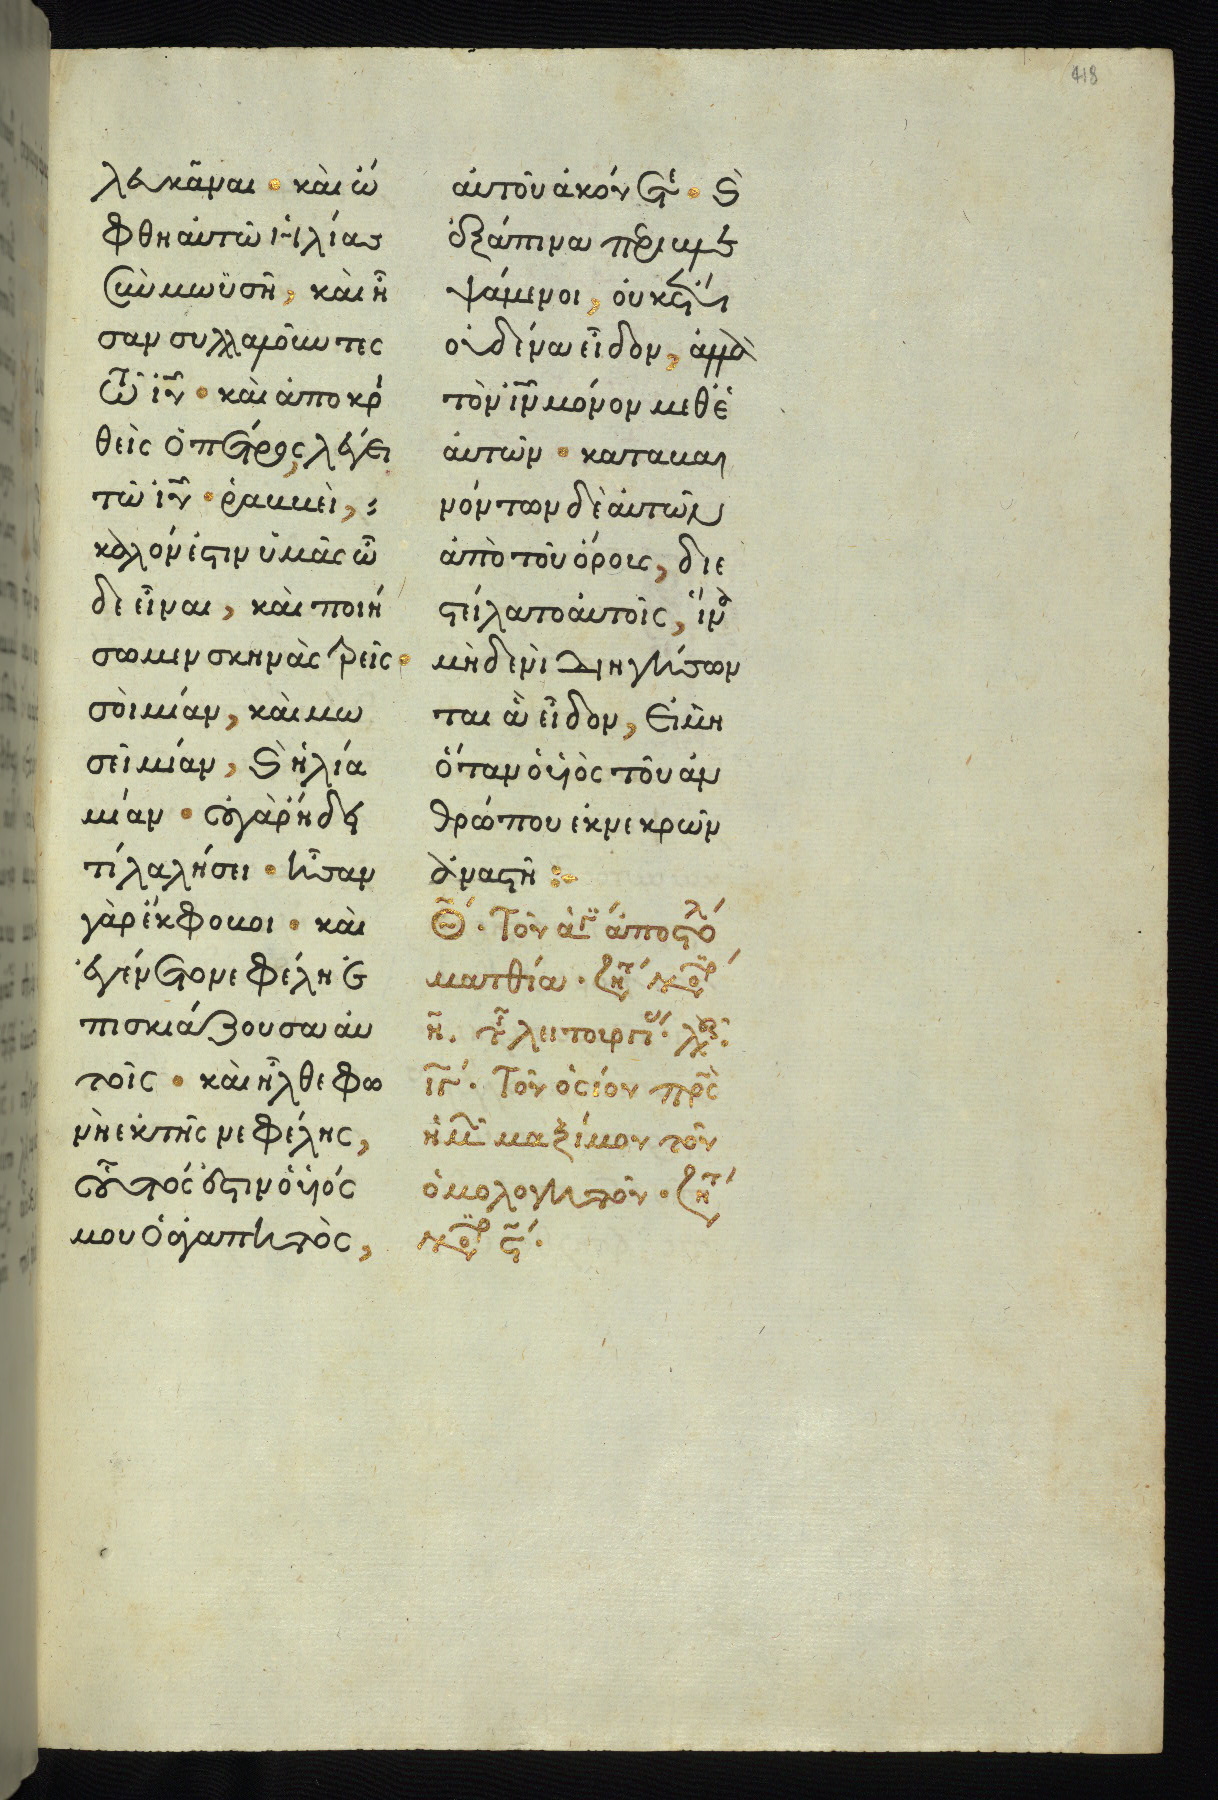 418
λευκᾶναι · καὶ ὤ
φθη αὐτῶ Ἠλίας
σὺν μωϋσῆ, καὶ ἦ
σαν συλλαλοῦντες
τῶ ἰῦ · καὶ ἀποκρι
θεὶς ὁ πέτρος, λέγει
τῶ ἰῦ · ῥαββεὶ,
καλόν ἐστιν ὑμᾶς ὧ
δε εἶναι, καὶ ποιή
σωμεν σκηνὰς τρεῖς ·
σὸι μίαν, καὶ μω
σεῖ μίαν, καὶ ἠλία
μίαν · οὐ γὰρ ἤδει
τί λαλήσει · ἦσαν
γὰρ ἔκφοβοι · καὶ
ἐγένετο νεφέλη ἐ
πισκιάζουσα αὐ
τοῖς · καὶ ἦλθε φω
νὴ ἐκ τῆς νεφέλης,
οὗτός ἐστιν ὁ ὑιός
μου ὁ ἀγαπητὸς,
αὐτοῦ ἀκούετε · καὶ
ἐξάπινα περιβλε
ψάμενοι, οὐκέτι
οὐδένα εἶδον, ἀλλὰ
τὸν ἰῦ μόνον μεθ' ἑ
αυτῶν · καταβαι
νόντων δὲ αὐτῶν
ἀπὸ τοῦ ὄρους, διε
στείλατο αὐτοῖς, ἵνα
μὴδενὶ διηγήσων
ται ἃ εἶδον, εἰ μὴ
ὅταν ὁ ὑιὸς τοῦ ἀν
θρώπου ἐκ νεκρῶν
ἀναστῆ :
Θ΄. Τοῦ ἁγ ἀποστό
ματθία · ζητ
η. τ λειτουργι.
ιγ΄. Τοῦ ὁσίου πρς
ἡμ μαξίμου τοῦ
ὁμολογητοῦ · ζητ